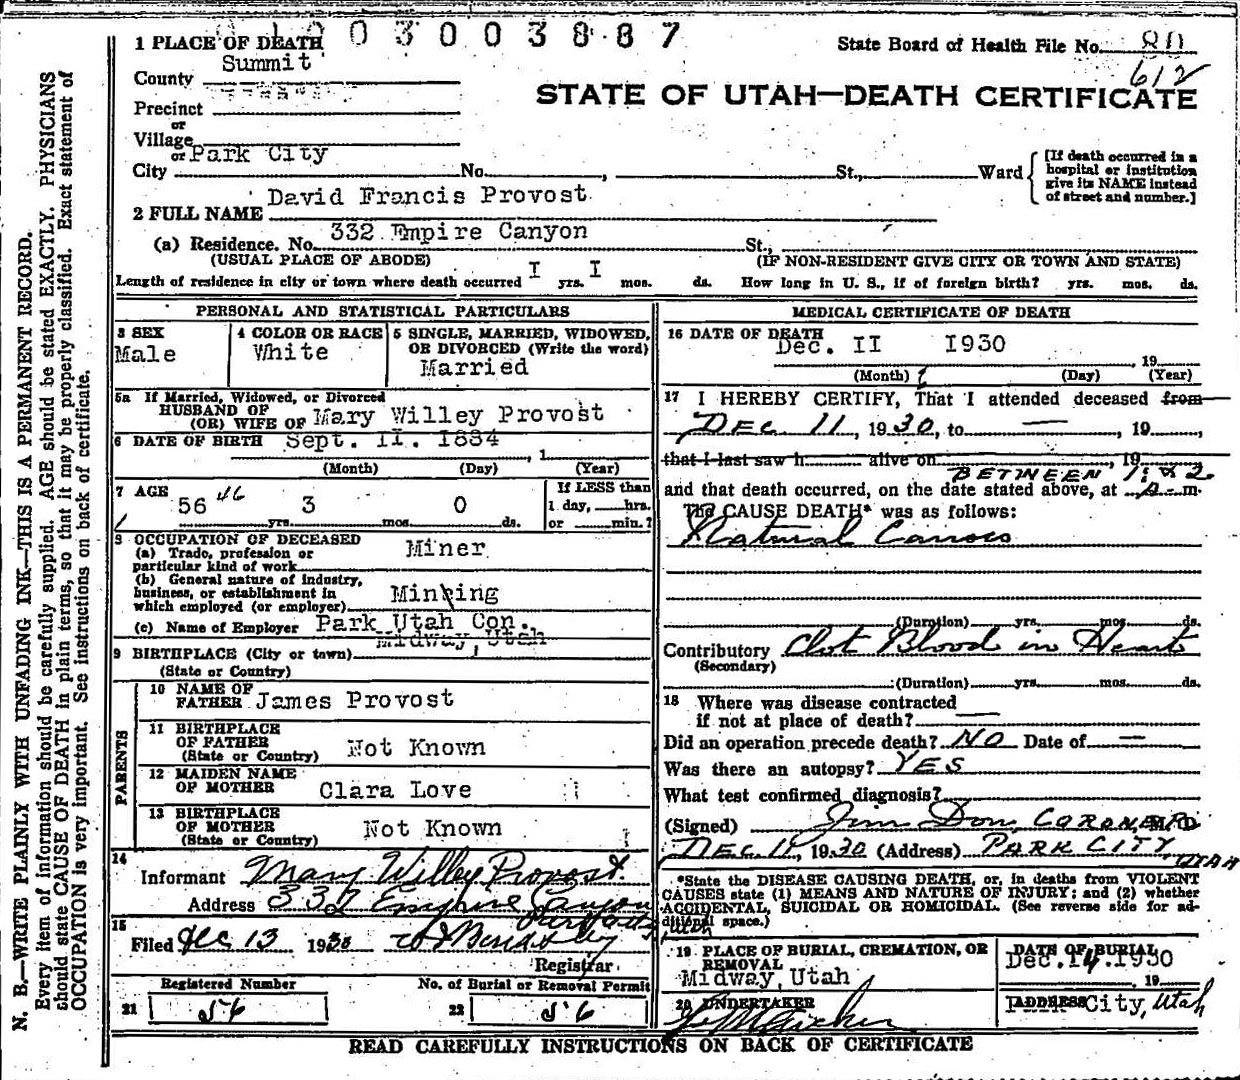 1 PLACE OF DEATH 003003887 State Board of Health File No. 80
County Summit 612
STATE OF UTAH—DEATH CERTIFICATE
Precinct
or
Village
or Park City
City No. , St., Ward [If death occurred in a hospital or institution give its NAME instead of street and number.]
2 FULL NAME David Francis Provost
(a) Residence. No. 332 Empire Canyon St.,
(USUAL PLACE OF ABODE) (IF NON-RESIDENT GIVE CITY OR TOWN AND STATE)
Length of residence in city or town where death occurred I yrs. I mos. ds. How long in U. S., if of foreign birth? yrs. mos. ds.
PERSONAL AND STATISTICAL PARTICULARS
3 SEX
Male
4 COLOR OR RACE
White
5 SINGLE, MARRIED, WIDOWED,
OR DIVORCED (Write the word)
Married
5a If Married, Widowed, or Divorced
HUSBAND OF
(OR) WIFE OF Mary Willey Provost
6 DATE OF BIRTH Sept. II. 1884 , 1
(Month) (Day) (Year)
7 AGE
56 46 yrs. 3 mos. 0 ds.
If LESS than
1 day, hrs.
or min.?
8 OCCUPATION OF DECEASED
(a) Trade, profession or
particular kind of work Miner
(b) General nature of industry,
business, or establishment in
which employed (or employer) Mining
(c) Name of Employer Park Utah Con.
Midway, Utah
9 BIRTHPLACE (City or town)
(State or Country)
PARENTS
10 NAME OF
FATHER James Provost
11 BIRTHPLACE
OF FATHER
(State or Country) Not Known
12 MAIDEN NAME
OF MOTHER Clara Love
13 BIRTHPLACE
OF MOTHER
(State or Country) Not Known
14
Informant Mary Willey Provost.
Address 332 Empire Canyon
Utah
15
Filed Dec 13 1930
Registrar
Registered Number No. of Burial or Removal Permit
21 56 22 56
MEDICAL CERTIFICATE OF DEATH
16 DATE OF DEATH
Dec. II I930 , 19
(Month) (Day) (Year)
17 I HEREBY CERTIFY, That I attended deceased from
DEC 11, 1930, to — , 19 ,
that I last saw h alive on , 19
BETWEEN 1 & 2
and that death occurred, on the date stated above, at A. m.
The CAUSE DEATH* was as follows:
Natural Causes
(Duration) yrs. mos. ds.
Contributory Clot Blood in Heart
(Secondary)
(Duration) yrs. mos. ds.
18 Where was disease contracted
if not at place of death? —
Did an operation precede death? NO Date of —
Was there an autopsy? YES
What test confirmed diagnosis?
(Signed) Jim Don, CORONER M. D.
DEC 11, 1930 (Address) PARK CITY, UTAH
*State the DISEASE CAUSING DEATH, or, in deaths from VIOLENT
CAUSES state (1) MEANS AND NATURE OF INJURY; and (2) whether
ACCIDENTAL, SUICIDAL OR HOMICIDAL. (See reverse side for ad-
ditional space.)
19 PLACE OF BURIAL, CREMATION, OR
REMOVAL
Midway, Utah
DATE OF BURIAL
Dec. 14. 1930
, 19
20 UNDERTAKER
ADDRESS
Park City, Utah
READ CAREFULLY INSTRUCTIONS ON BACK OF CERTIFICATE
N. B.—WRITE PLAINLY WITH UNFADING INK—THIS IS A PERMANENT RECORD.
Every item of information should be carefully supplied. AGE should be stated EXACTLY. PHYSICIANS
should state CAUSE OF DEATH in plain terms, so that it may be properly classified. Exact statement of
OCCUPATION is very important. See instructions on back of certificate.